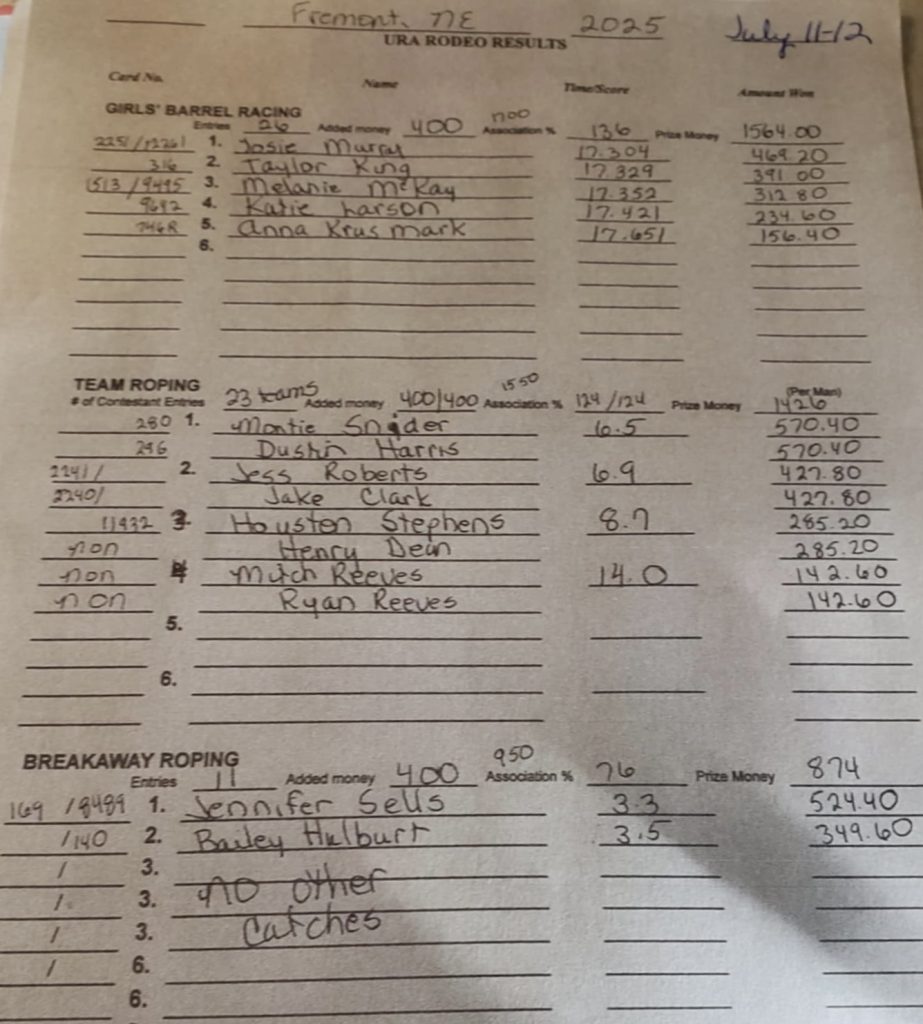 Fremont, NE 2025 July 11-12
URA RODEO RESULTS
Card No. Name Time/Score Amount Won
GIRLS' BARREL RACING
Entries 26 Added money 400 1700 Association % 136 Prize Money 1564.00
2251/12261 1. Josie Murray 17.304 469.20
316 2. Taylor King 17.329 391.00
1513/9495 3. Melanie McKay 17.352 312.80
9692 4. Katie Larson 17.421 234.60
746R 5. Anna Krusmark 17.651 156.40
6.
TEAM ROPING
# of Contestant Entries 23 teams Added money 400/400 1550 Association % 124/124 Prize Money (Per Man) 1426
280 1. Montie Snider 6.5 570.40
296 Dustin Harris 570.40
2241/ 2. Jess Roberts 6.9 427.80
2240/ Jake Clark 427.80
11432 3. Houston Stephens 8.7 285.20
non Henry Dean 285.20
non 4 Mitch Reeves 14.0 142.60
non Ryan Reeves 142.60
5.
6.
BREAKAWAY ROPING
Entries 11 Added money 400 950 Association % 76 Prize Money 874
169 /8489 1. Jennifer Sells 3.3 524.40
/140 2. Bailey Hulburt 3.5 349.60
/ 3.
/ 3. no other
/ 3. Catches
/ 6.
6.